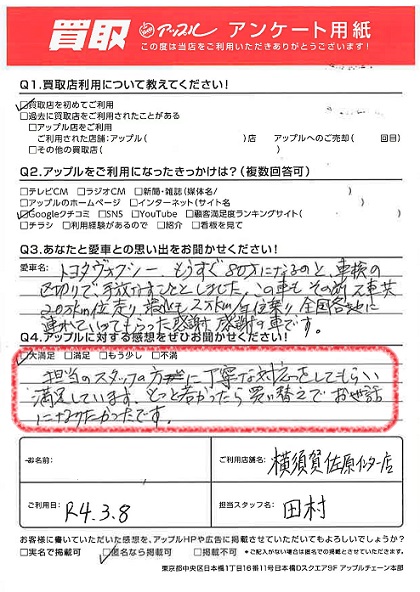 買取 アップル アンケート用紙
この度は当店をご利用いただきありがとうございます!
Q1.買取店利用について教えてください!
☑買取店を初めてご利用
□過去に買取店をご利用されたことがある
□アップル店をご利用
ご利用された店舗:アップル( )店 アップルへのご売却( 回目)
□その他の買取店( )
Q2.アップルをご利用になったきっかけは?(複数回答可)
□テレビCM □ラジオCM □新聞・雑誌(媒体名/ )
□アップルのホームページ □インターネット(サイト名 )
☑Googleクチコミ □SNS □YouTube □顧客満足度ランキングサイト( )
□チラシ □利用経験があるので □紹介 □看板を見て
Q3.あなたと愛車との思い出をお聞かせください!
愛車名: トヨタヴォクシー、もうすぐ80才になるのと、車検の
区切りで手放すことにしました。この車もその前の車共
20万km位走り 最近も 2万km/年位乗り 全国各地に
連れていってもらった感謝、感謝の車です。
Q4.アップルに対する感想をぜひお聞かせください!
☑大満足 □満足 □もう少し □不満
担当のスタッフの方に丁寧な対応をしてもらい
満足しています。もっと若かったら買い替えでお世話
になりたかったです。
お名前:
ご利用店舗名: 横須賀佐原インター店
ご利用日: R4.3.8
担当スタッフ名: 田村
お客様に書いていただいた感想を、アップルHPや広告に掲載させていただいてもよろしいでしょうか?
□実名で掲載可 ☑匿名なら掲載可 □掲載不可 *ご記入がない場合は匿名での掲載とさせていただきます。
東京都中央区日本橋1丁目16番11号日本橋Dスクエア9F アップルチェーン本部